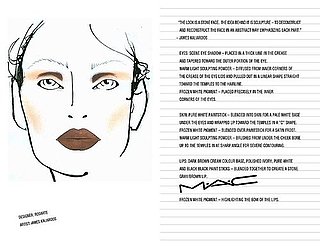 "THE LOOK IS A STONE FACE. THE IDEA BEHIND IT IS SCULPTURE – TO DECONSTRUCT
AND RECONSTRUCT THE FACE IN AN ABSTRACT WAY, EMPHASIZING EACH PART."
- JAMES KALIARDOS
EYES: SCENE EYE SHADOW – PLACED IN A THICK LINE IN THE CREASE
AND TAPERED TOWARD THE OUTER PORTION OF THE EYE.
WARM LIGHT SCULPTING POWDER – DIFFUSED FROM INNER CORNERS OF
THE CREASE OF THE EYE LIDS AND PULLED OUT IN A LINEAR SHAPE STRAIGHT
TOWARD THE TEMPLES TO THE HAIRLINE.
FROZEN WHITE PIGMENT – PLACED PRECISELY IN THE INNER
CORNERS OF THE EYES.
SKIN: PURE WHITE PAINTSTICK – BLENDED INTO SKIN FOR A PALE WHITE BASE
UNDER THE EYES AND WRAPPED UP TOWARD THE TEMPLES IN A "C" SHAPE.
FROZEN WHITE PIGMENT – BLENDED OVER PAINTSTICK FOR A SATIN FROST.
WARM LIGHT SCULPTING POWDER – DIFFUSED FROM UNDER THE CHEEK BONE
UP TO THE TEMPLES IN AT SHARP ANGLE FOR SEVERE CONTOURING.
LIPS: DARK BROWN CREAM COLOUR BASE, POLISHED IVORY, PURE WHITE
AND BLACK BLACK PAINT STICKS – BLENDED TOGETHER TO CREATE A STONE
GRAY/BROWN LIP.
M·A·C
FROZEN WHITE PIGMENT – HIGHLIGHTING THE BOW OF THE LIPS.
DESIGNER: RODARTE
ARTIST: JAMES KALIARDOS